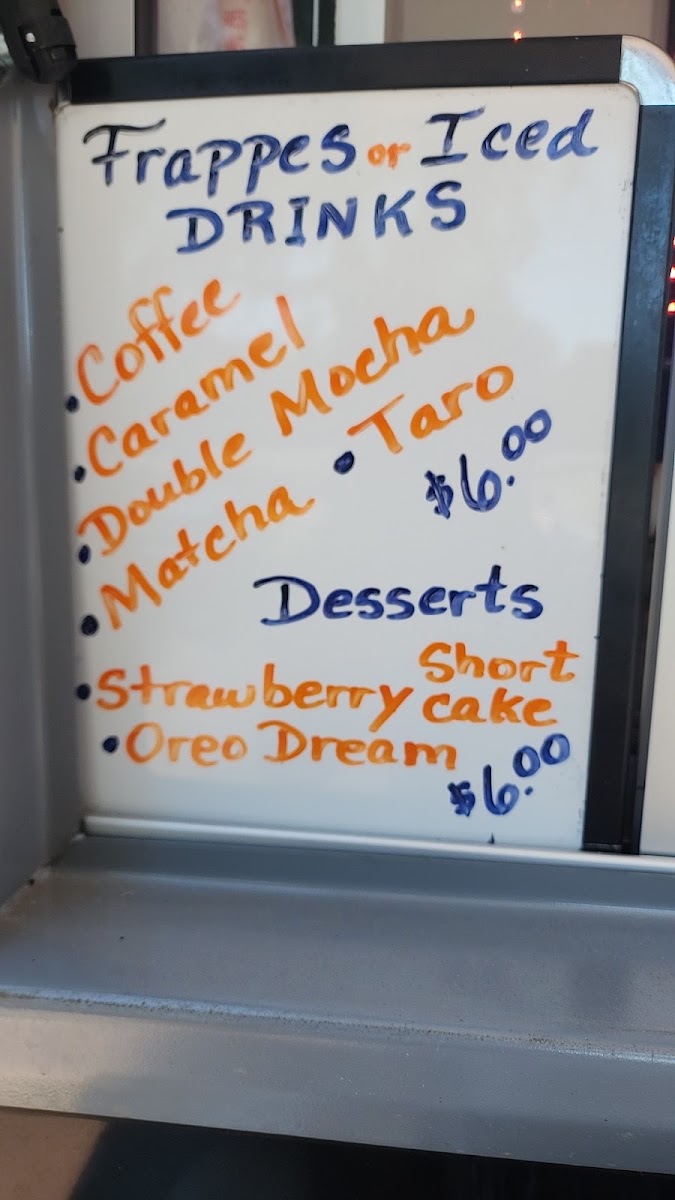 Frappes or Iced
DRINKS
• Coffee
• Caramel
• Double Mocha
• Matcha • Taro
$6.00
Desserts
• Strawberry Short
cake
• Oreo Dream
$6.00